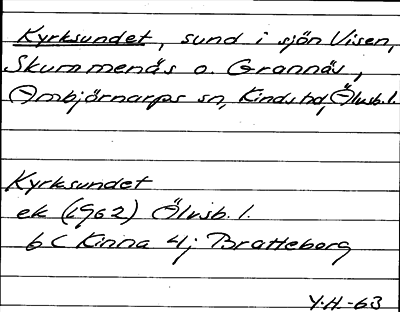 Kyrksundet, sund i sjön Visen,
Skummenäs o. Grannäs,
Ambjörnarps sn, Kinds hd, Älvsb. l.
Kyrksundet
ek (1962) Älvsb. l.
6 C Kinna 4j Bratteborg
Y.H.-63